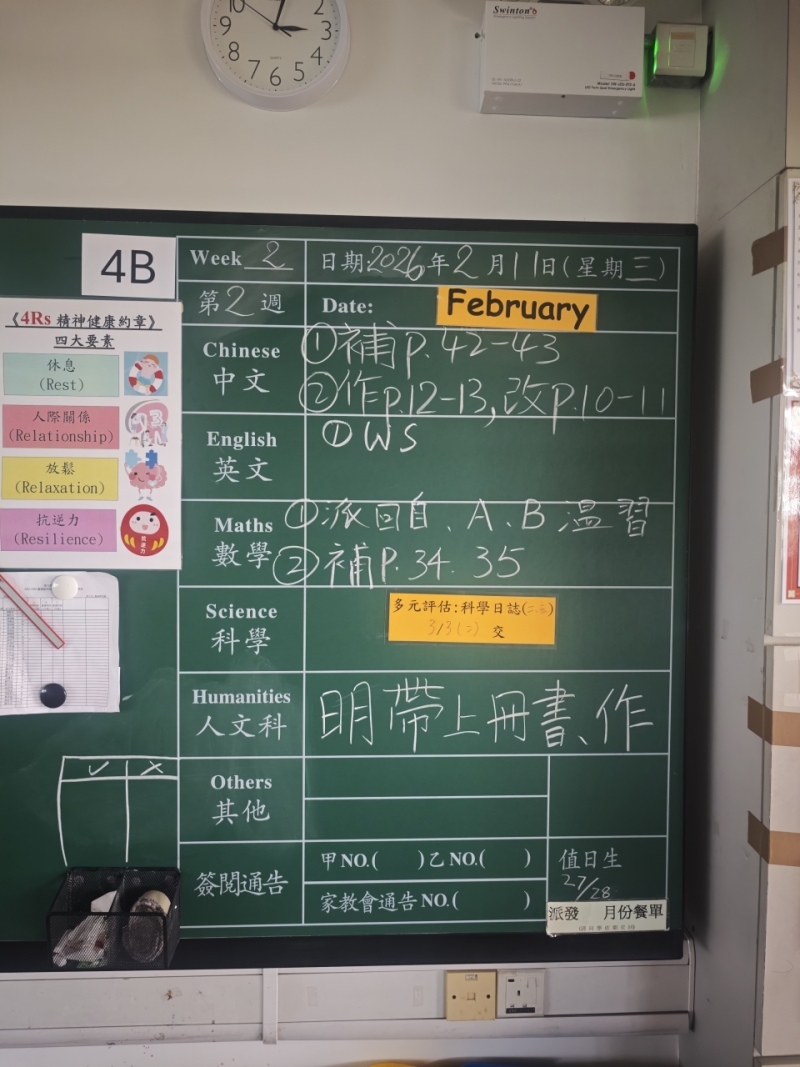 10
2
9
3
8
4
7
6
5
Swinton
4B
Week 2
日期:2026年2月11日(星期三)
第2週
Date: February
《4Rs 精神健康約章》
四大要素
休息
(Rest)
人際關係
(Relationship)
放鬆
(Relaxation)
抗逆力
(Resilience)
Chinese
中文
①補p.42-43
②作p.12-13,改p.10-11
English
英文
①WS
Maths
數學
①派回自、A、B溫習
②補P.34.35
Science
科學
多元評估:科學日誌(二.五)
3/3(二) 交
Humanities
人文科
明帶上冊書、作
✓ ×
Others
其他
簽閱通告
甲NO.( )乙NO.( )
家教會通告NO.( )
值日生
27/28
派發 月份餐單